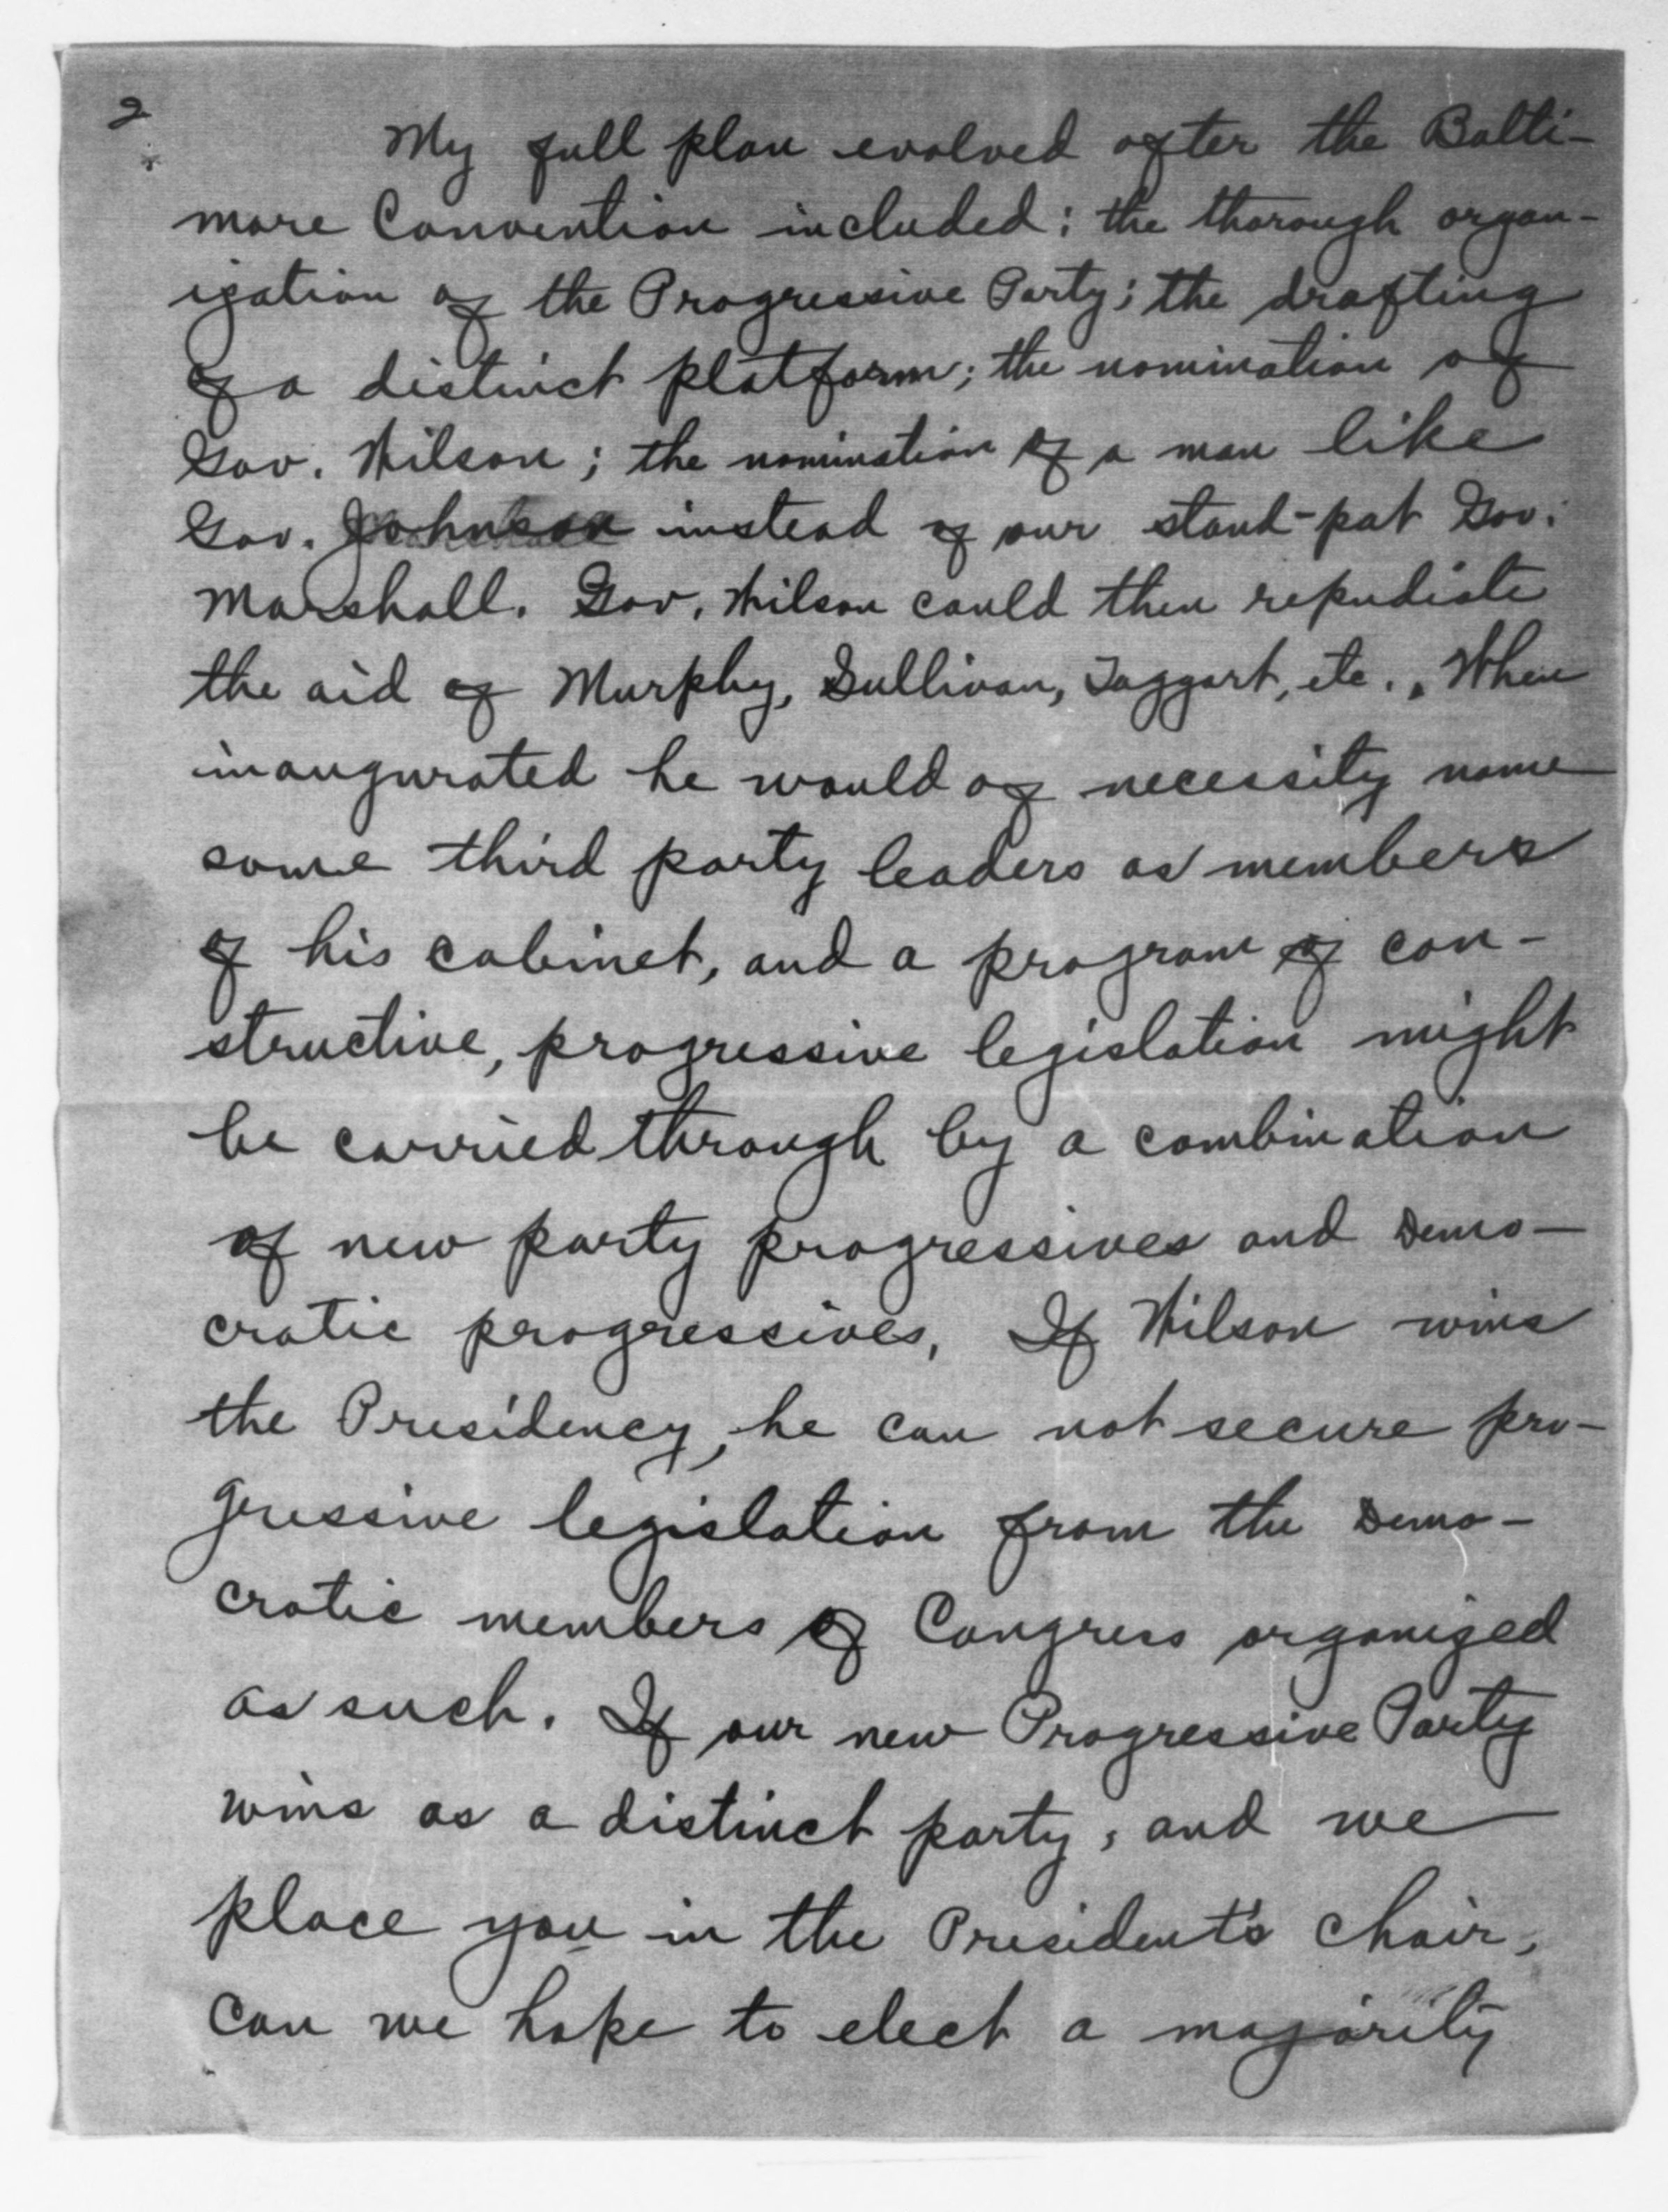 2
My full plan evolved after the Balti-
more Convention included: the thorough organ-
ization of the Progressive Party; the drafting
of a distinct platform; the nomination of
Gov. Wilson; the nomination of a man like
Gov. Johnson instead of our stand-pat Gov.
Marshall. Gov. Wilson could then repudiate
the aid of Murphy, Sullivan, Taggart, etc.. When
inaugurated he would of necessity name
some third party leaders as members
of his cabinet, and a program of con-
structive, progressive legislation might
be carried through by a combination
of new party progressives and Demo-
cratic progressives. If Wilson wins
the Presidency, he can not secure pro-
gressive legislation from the Demo-
cratic members of Congress organized
as such. If our new Progressive Party
wins as a distinct party, and we
place you in the President's chair,
can we hope to elect a majority